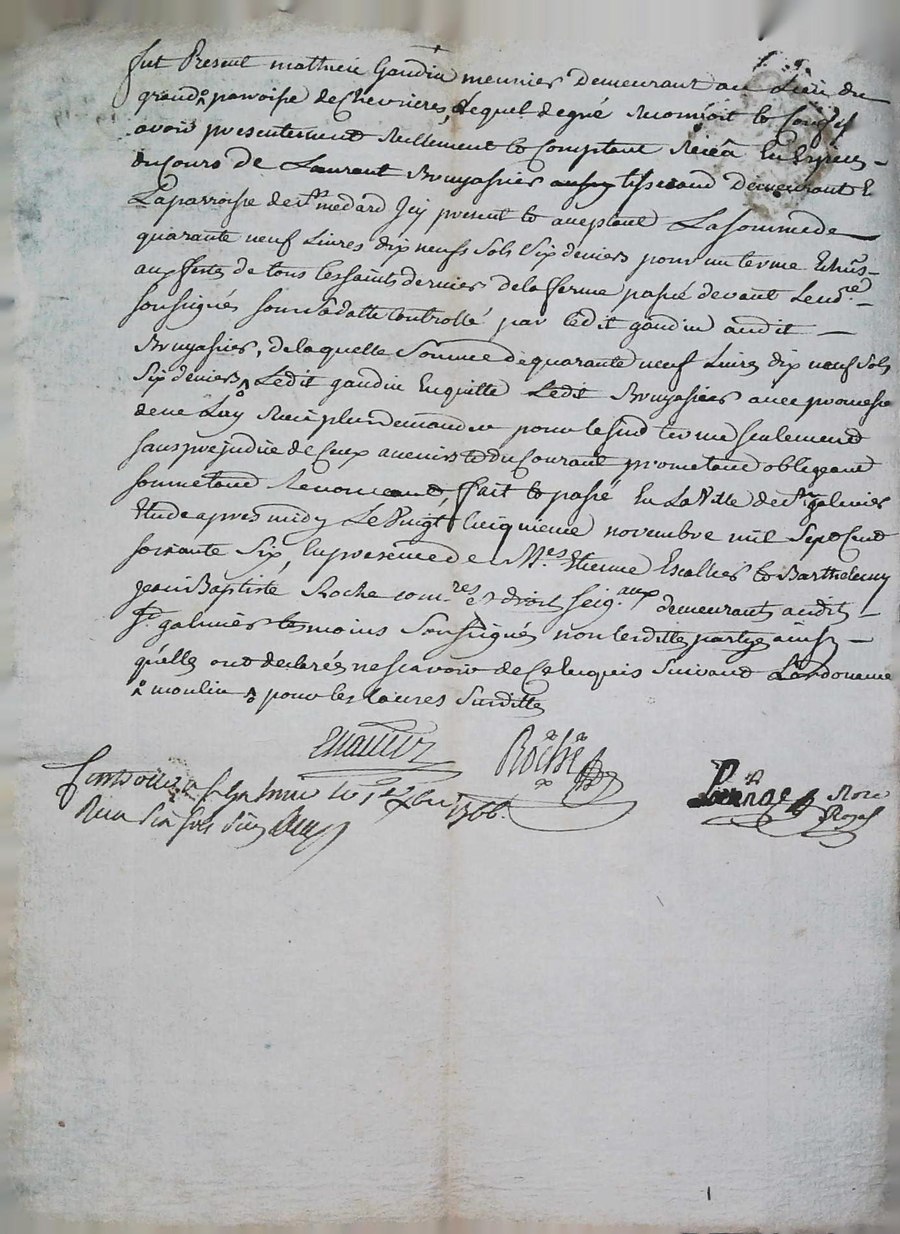 fut Present mathieu Gaudin meunier Demeurant au Lieu du
grand parroisse de Chevrieres, Lequel de gré Reconnoit et Confesse
avoir presentement Reellement et Comptant Receu En Especes
du Cours de Laurent Bruyassier tisserand Demeurant E
Laparroisse de st medard Jcy present et aceptant La somme de
quarante neuf Livres dix neufs Sols Six deniers pour un terme Echus
aux festes de tous les saints dernier de la ferme passé devant Le nore
soussignés sous sa datte Controllé par Ledit gaudin audit
Bruyassier, de laquelle Somme de quarante neuf Livres dix neuf Sols
Six deniers Ledit gaudin En quitte Ledit Bruyassier avec promesse
de ne Luy Rien plus demander pour le susd terme seulement
sans prejudice de Ceux avenir et du Courant promettant obligeant
soumettant Renonceant, fait et passé En La Ville de st galmier
Etude apres midy Le Vingt Cinquieme novembre mil Sept Cent
soixante Six, En presence de Mes. Etienne Escallier et Barthelemy
Jean Baptiste Roche comres es droits seigaux demeurants audit
St galmier temoins Soussignés non Lesdittes partyes ainsy
qu'elles ont declarées ne scavoir de Ce Enquis Suivant L'ordonnance
moulin pour les Causes Susdittes
Escallier Roche Nore
Royal
Controllé a St galmier le 1er Xbre 1766.
Receu Six sols Six den